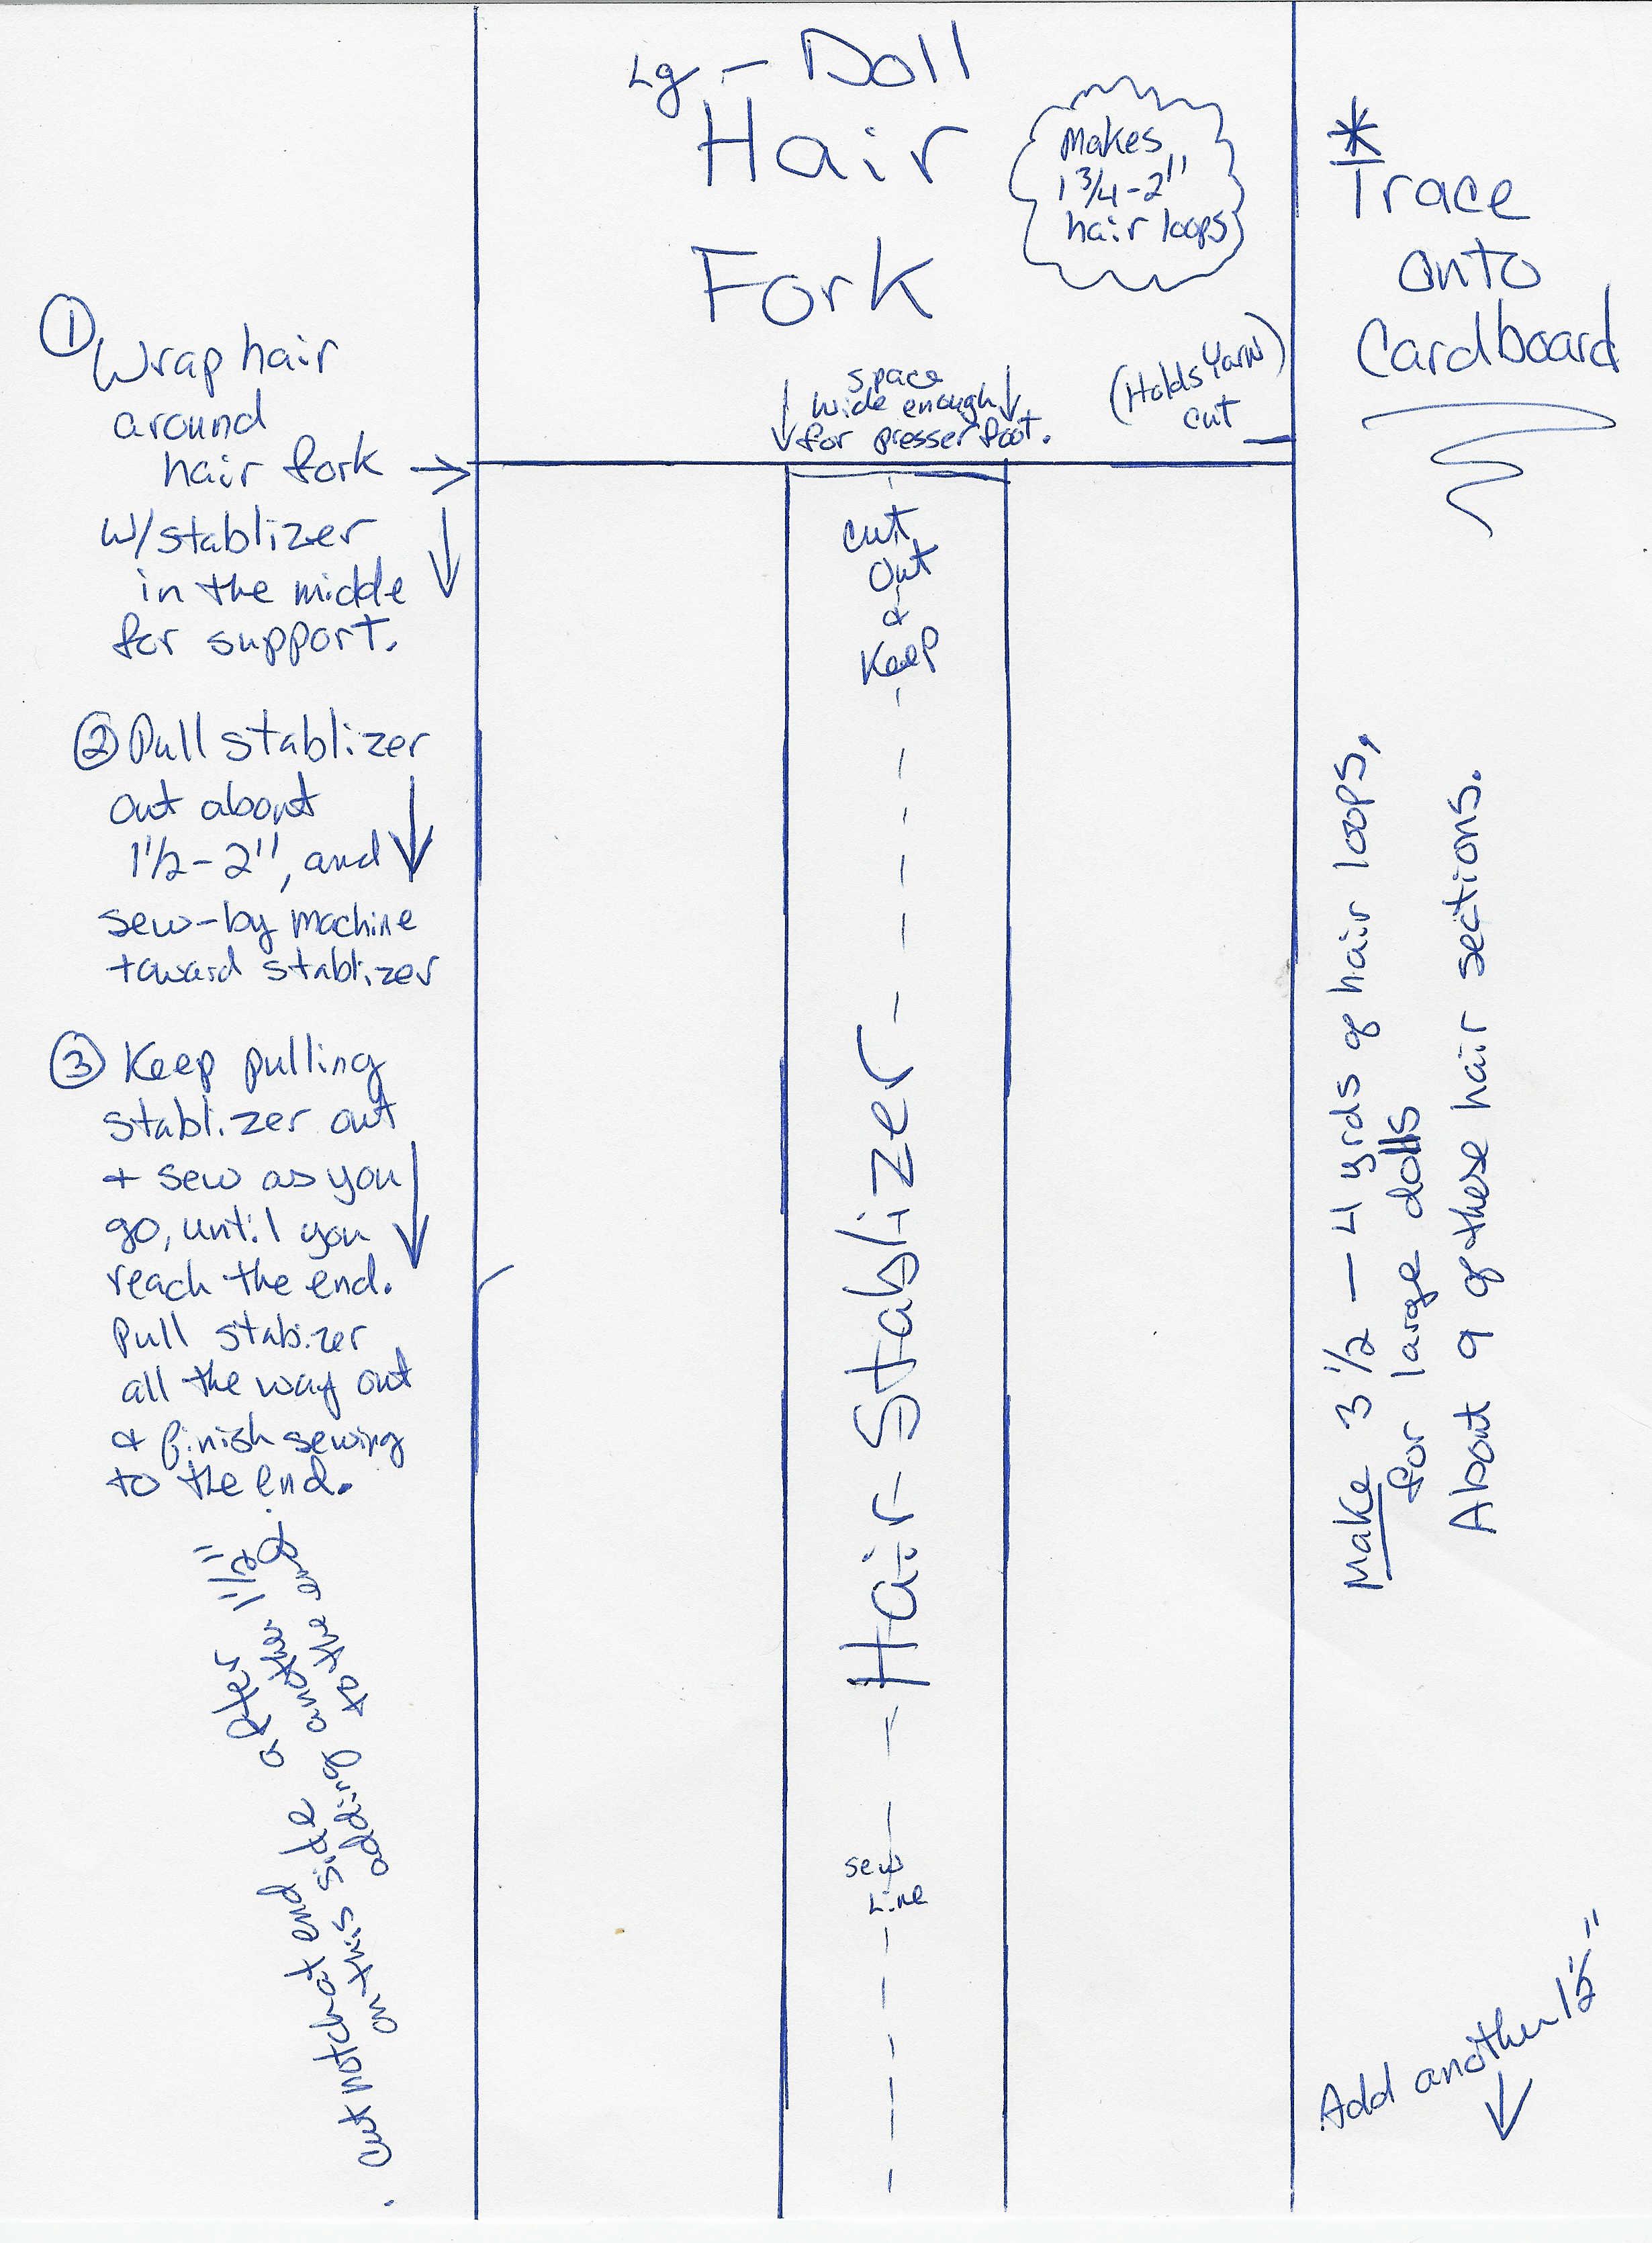 Lg - Doll
Hair
Fork
Makes
1 3/4-2"
hair loops
*
Trace
onto
Cardboard
space
wide enough
for presser foot.
(Holds Yarn)
cut
① Wrap hair
around
hair fork →
w/stablizer
in the middle
for support.
② Pull stablizer
out about
1 1/2-2", and
sew-by machine
toward stablizer
③ Keep pulling
stablizer out
+ sew as you
go, until you
reach the end.
Pull stabizer
all the way out
& finish sewing
to the end.
cut notch at end side after 1 1/2"
on this side another
adding to the end.
cut
out
&
Keep
Hair Stablizer
sew
Line
Make 3 1/2 - 4 yrds of hair loops,
for large dolls
About 9 of these hair sections.
Add another 1 1/2"